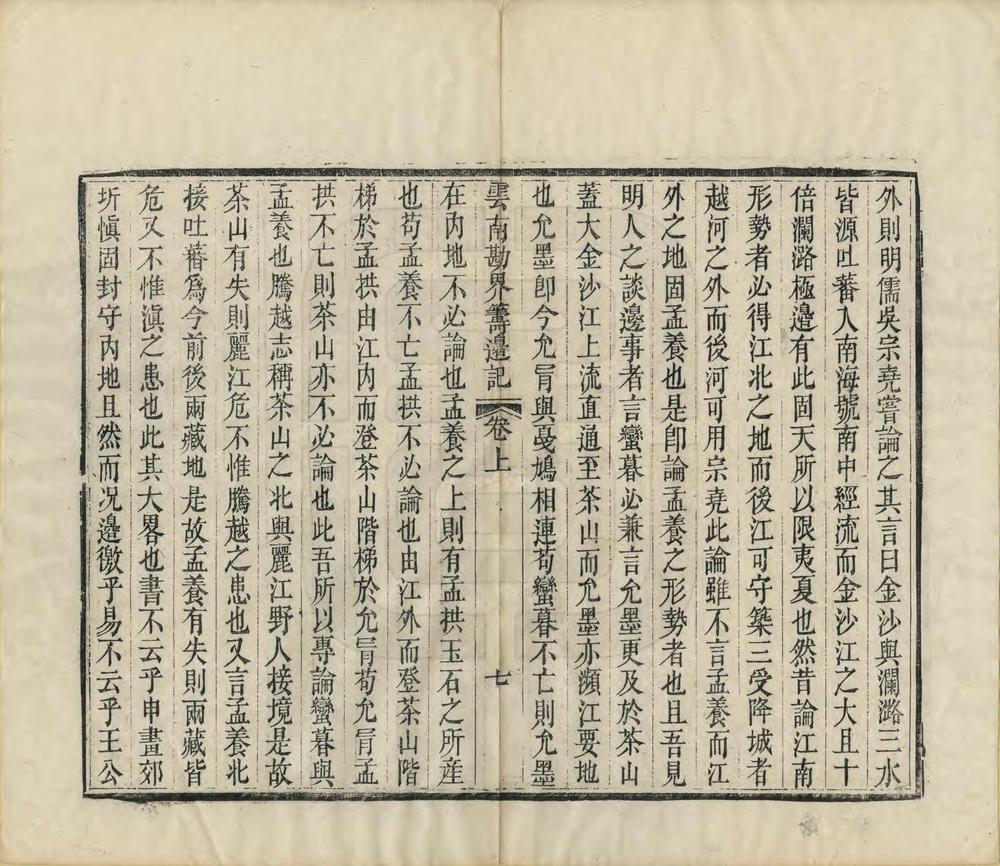 外則明儒吳宗堯嘗論之其言曰金沙與瀾潞三水
皆源吐蕃入南海號南中經流而金沙江之大且十
倍瀾潞極邊有此固天所以限夷夏也然昔論江南
形勢者必得江北之地而後江可守築三受降城者
越河之外而後河可用宗堯此論雖不言孟養而江
外之地固孟養也是卽論孟養之形勢者也且吾見
明人之談邊事者言蠻暮必兼言允墨更及於茶山
蓋大金沙江上流直通至茶山而允墨亦瀕江要地
也允墨卽今允冐與戞鳩相連苟蠻暮不亡則允墨
雲南勘界籌邊記 卷上 七
在內地不必論也孟養之上則有孟拱玉石之所產
也苟孟養不亡孟拱不必論也由江外而登茶山階
梯於孟拱由江內而登茶山階梯於允冐苟允冐孟
拱不亡則茶山亦不必論也此吾所以專論蠻暮與
孟養也騰越志稱茶山之北與麗江野人接境是故
茶山有失則麗江危不惟騰越之患也又言孟養北
接吐蕃爲今前後兩藏地是故孟養有失則兩藏皆
危又不惟滇之患也此其大畧也書不云乎申畫郊
圻愼固封守內地且然而况邊徼乎易不云乎王公